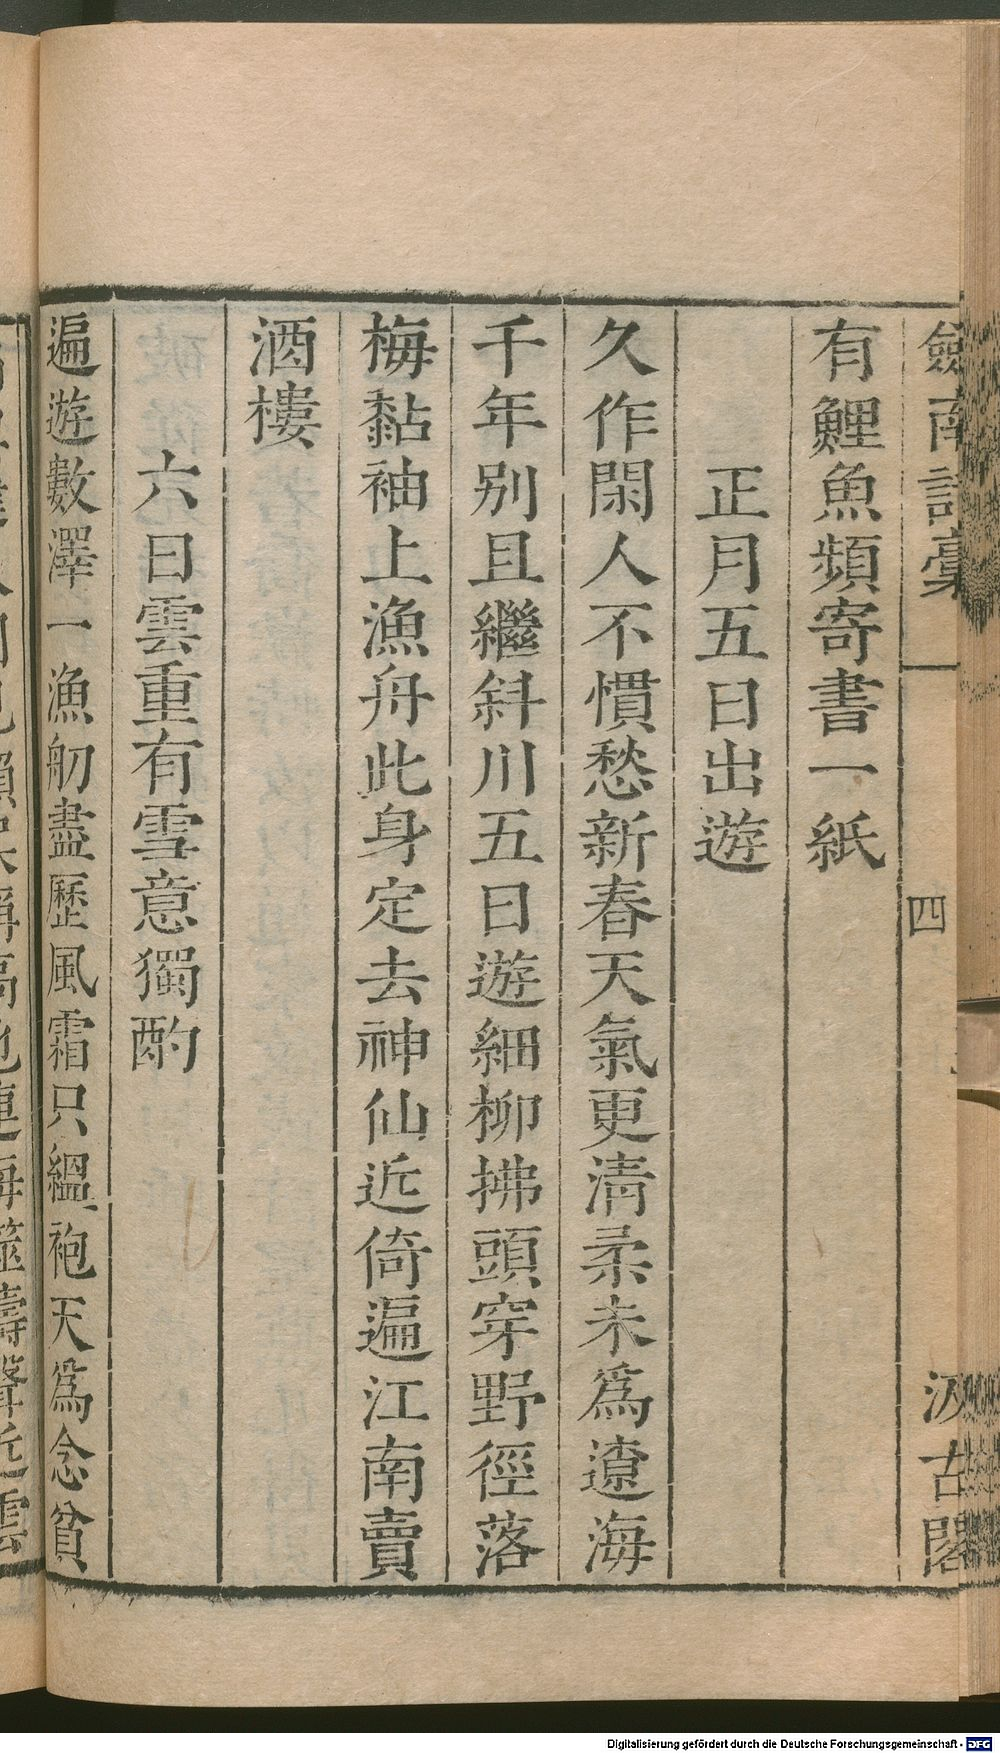 劍南詩藁
四
汲古閣
有鯉魚頻寄書一紙
正月五日出遊
久作閑人不慣愁新春天氣更清柔未爲遼海
千年别且繼斜川五日遊細柳拂頭穿野徑落
梅黏袖上漁舟此身定去神仙近倚遍江南賣
酒樓
六日雲重有雪意獨酌
遍遊數澤一漁舠盡歷風霜只緼袍天爲念貧
Digitalisierung gefördert durch die Deutsche Forschungsgemeinschaft - DFG